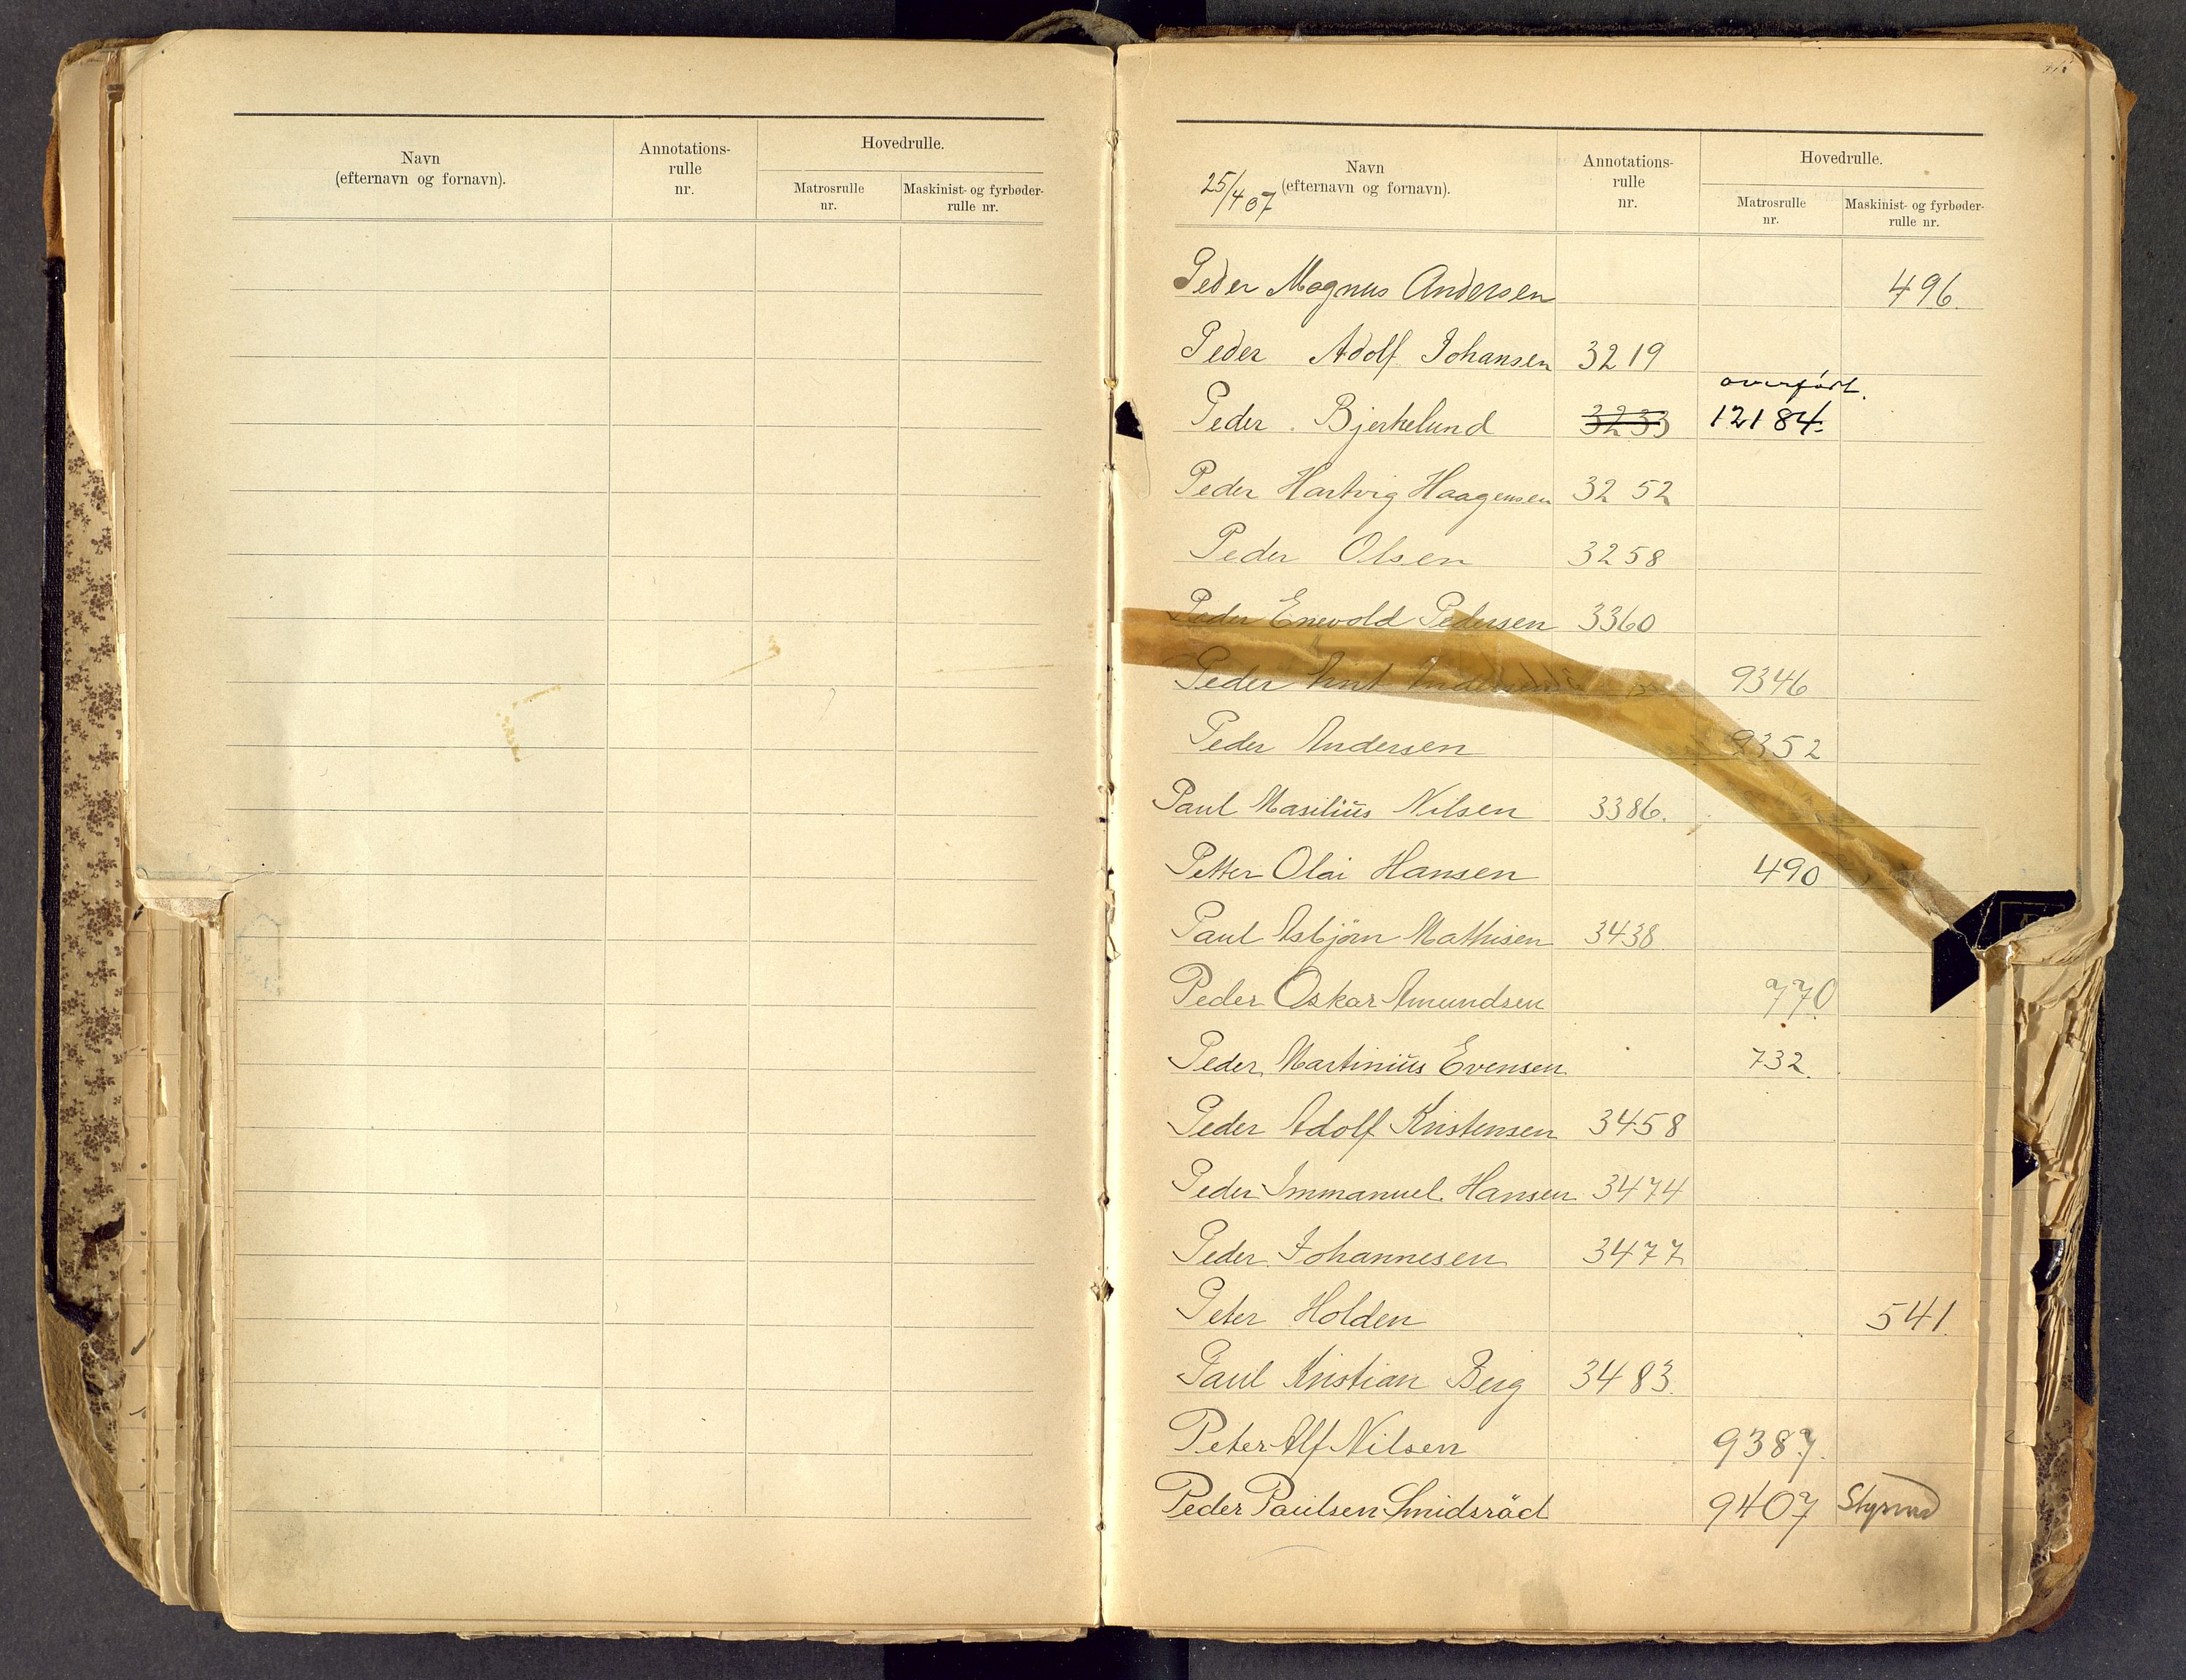 Navn
(efternavn og fornavn).
Annotations-
rulle
nr.
Hovedrulle.
Matrosrulle
nr.
Maskinist- og fyrbøder-
rulle nr.
25/4 07
Navn
(efternavn og fornavn).
Annotations-
rulle
nr.
Hovedrulle.
Matrosrulle
nr.
Maskinist- og fyrbøder-
rulle nr.
Peder Magnus Andersen 496.
Peder Adolf Johansen 3219
overført.
Peder Bjerkelund 3233 12184.
Peder Hartvig Haagensen 3252
Peder Olsen 3258
Peder Enevold Pedersen 3360
Peder 9346
Peder Andersen 9352
Paul Masilius Nilsen 3386.
Petter Olai Hansen 490
Paul Asbjørn Mathisen 3438
Peder Oskar Amundsen 770
Peder Martinius Evensen 732.
Peder Adolf Kristensen 3458
Peder Immanuel Hansen 3474
Peder Johannesen 3477
Peter Holden 541.
Paul Kristian Berg 3483.
Peter Alf Nilsen 9387.
Peder Paulsen Smidsräd 9407 Styrmd